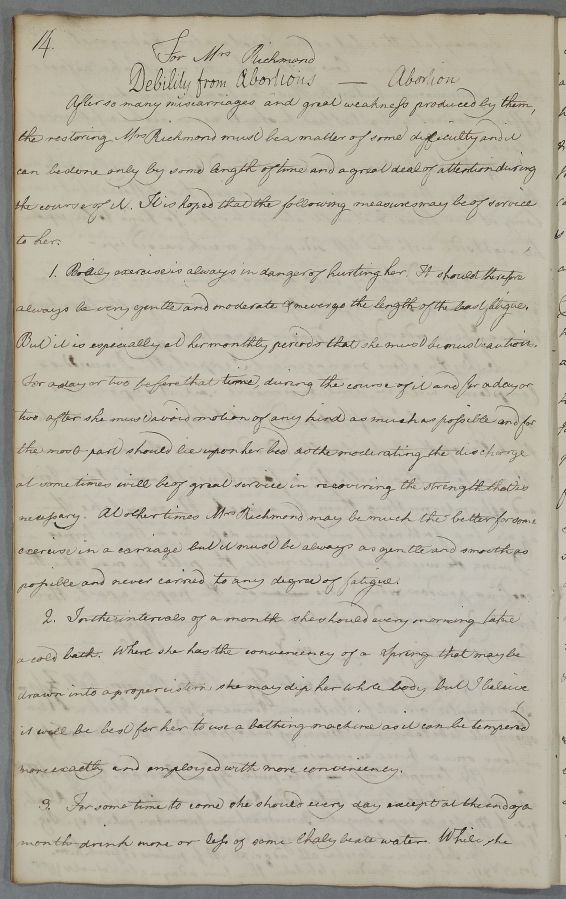 14.
For Mrs Richmond
Debility from Abortions — Abortion
After so many miscarriages and great weakness produced by them,
the restoring Mrs Richmond must be a matter of some difficulty and it
can be done only by some length of time and a great deal of attention during
the course of it. It is hoped that the following measures may be of service
to her.
1. Bodily exercise is always in danger of hurting her. It should therefore
always be very gentle and moderate & never go the length of the least fatigue.
But it is especially at her monthly periods that she must be must caution.
For a day or two before that time, during the course of it and for a day or
two after she must avoid motion of any kind as much as possible and for
the most part should lie upon her bed as the moderating the discharge
at some times will be of great service in recovering the strength that is
necessary. At other times Mrs Richmond may be much the better for some
exercise in a carriage but it must be always as gentle and smooth as
possible and never carried to any degree of fatigue.
2. In the intervals of a month she should every morning take
a cold bath. Where she has the conveniency of a Spring that may be
drawn into a proper cistern she may dip her whole body but I believe
it will be best for her to use a bathing machine as it can be tempered
more exactly and employed with more conveniency.
3. For some time to come she should every day except at the end of a
month drink more or less of some Chalybeate water. While she